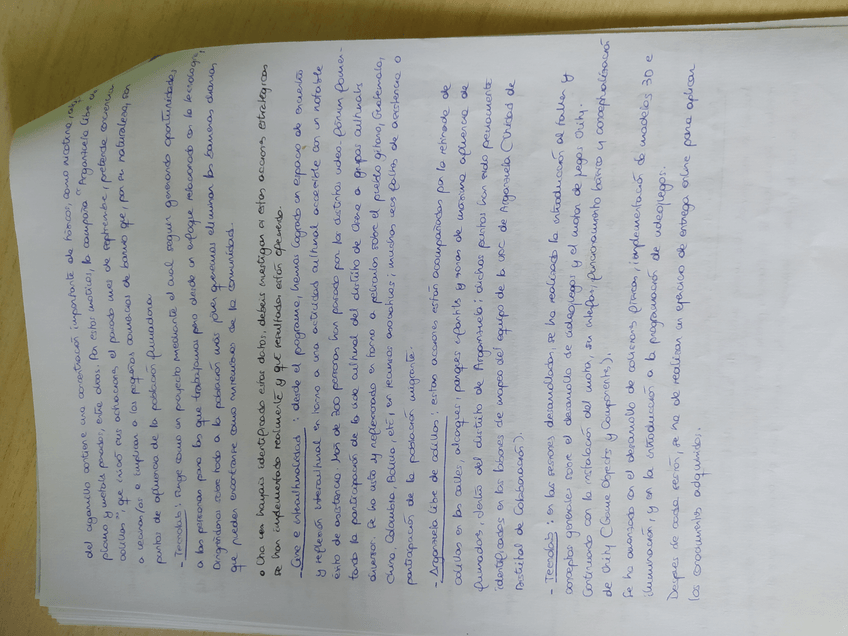 del cigarrillo contiene una concentración importante de tóxicos, como nicotina,
plomo y metales pesados, entre otros. Por estos motivos, la campaña "Arganzuela libre de
colillas", que inició sus actuaciones el pasado mes de septiembre, pretende concienciar
a vecinas/os e implicar a los pequeños comercios de barrio que, por su naturaleza, son
puntos de afluencia de la población fumadora.
- Tecnolab: Surge como un proyecto mediante el cual seguir generando oportunidades,
a las personas para las que trabajamos pero desde un enfoque relacionado con la tecnología,
Dirigiéndonos sobre todo a la población más joven queremos eliminar las barreras diarias
que pueden encontrarse como miembros de la comunidad.
• Una vez hayáis identificado estos datos, debéis investigar si estas acciones estratégicas
se han implementado realmente y qué resultados están ofreciendo.
- Cine e interculturalidad: desde el programa, hemos logrado un espacio de encuentro
y reflexión intercultural en torno a una actividad cultural accesible con un notable
éxito de asistencia. Más de 200 personas han pasado por los distintos video-fórum fomen-
tando la participación de la vida cultural del distrito de Usera a grupos culturales
diversos. Se ha visto y reflexionado en torno a películas sobre el pueblo gitano, Guatemala,
China, Colombia, Bolivia, etc, en recursos asociativos; muchas veces faltos de asistencia o
participación de la población migrante.
- Arganzuela libre de colillas: estas acciones están acompañadas por la retirada de
colillas en las calles, alcorques, parques infantiles y zonas de máxima afluencia de
fumadores, dentro del distrito de Arganzuela; dichos puntos han sido previamente
identificados en las labores de mapeo del equipo de la UDC de Arganzuela (Unidad de
Distrital de Colaboración).
- Tecnolab: en las sesiones desarrolladas, se ha realizado la introducción al taller y
conceptos generales sobre el desarrollo de videojuegos y el motor de juegos Unity.
Continuando con la instalación del motor, su interfaz, funcionamiento básico y conceptualización
de Unity (Game Objects y Components).
Se ha avanzado en el desarrollo de colisiones físicas, implementación de modelos 3D e
iluminación, y en la introducción a la programación de videojuegos.
Después de cada sesión, se ha de realizar un ejercicio de entrega online para aplicar
los conocimientos adquiridos.